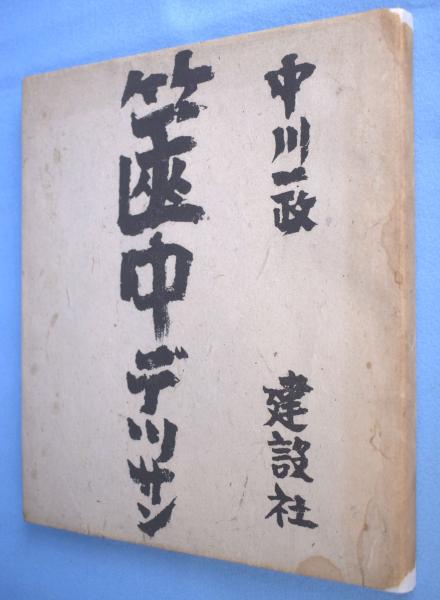 中川一政
篋中デツサン
建設社